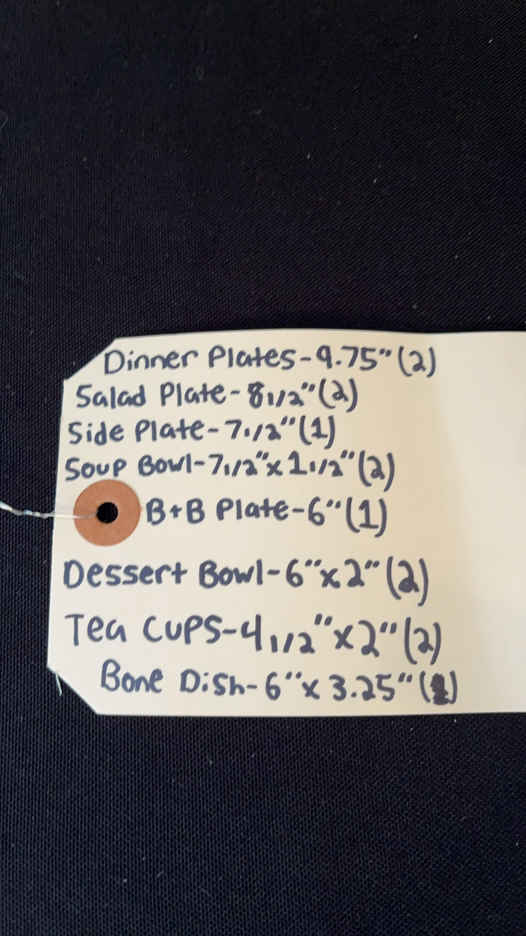 Dinner Plates-9.75"(2)
Salad Plate-8 1/2"(2)
Side Plate-7 1/2"(1)
Soup Bowl-7 1/2"x 1 1/2"(2)
B+B Plate-6"(1)
Dessert Bowl-6"x2"(2)
Tea Cups-4 1/2"x2"(2)
Bone Dish-6"x 3.25"